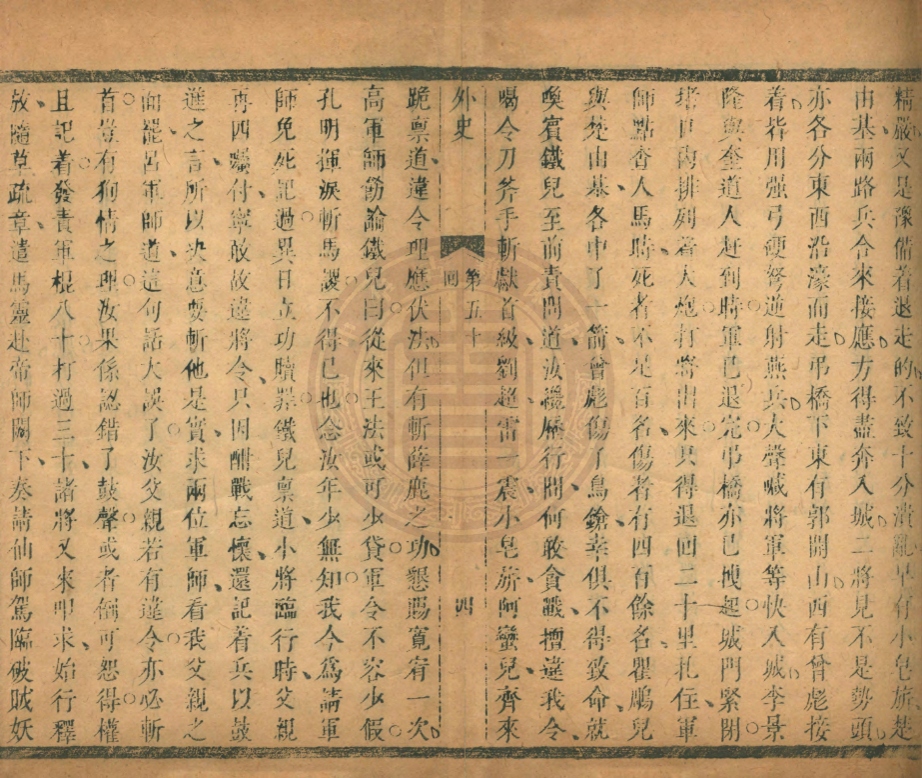 精嚴又是豫備着退走的不致十分潰亂早有小皂旂楚
由基兩路兵合來接應方得盡奔入城二將見不是勢頭
亦各分東西沿濠而走弔橋下東有郭開山西有曾彪接
着皆用强弓硬弩逆射燕兵大聲喊將軍等快入城李景
隆與奎道人赶到時軍已退完弔橋亦已拽起城門緊閉
堵口內排列着大炮打將出來只得退回二十里札住軍
師點查人馬時死者不是百名傷者有四百餘名瞿鵰兒
與楚由基各中了一箭曾彪傷了鳥鎗幸俱不得致命就
喚賓鐵兒至前責問道汝禮歷行間何敢貪戰擅違我令
喝令刀斧手斬獻首級劉超雷一震小皂旂阿蠻兒齊來
外史
第五十
回
四
跪禀道違令理應伏法但有斬薛鹿之功懇賜寬宥一次
高軍師飭諭鐵兒曰從來王法或可少貸軍令不容少假
孔明揮淚斬馬謖不得已也念汝年少無知我今爲請軍
師免死記過異日立功贖罪鐵兒禀道小將臨行時父親
再四囑付寧敢故違將令只因酣戰忘懷還記着兵以鼓
進之言所以決意要斬他是實求兩位軍師看我父親之
面罷呂軍師道這句話大誤了汝父親若有違令亦必斬
首豈有狥情之理汝果係認錯了鼓聲或者倘可恕得權
且記着發責軍棍八十打過三十諸將又來叩求始行釋
放隨草疏章遣馬靈赴帝師闕下奏請仙師駕臨破賊妖